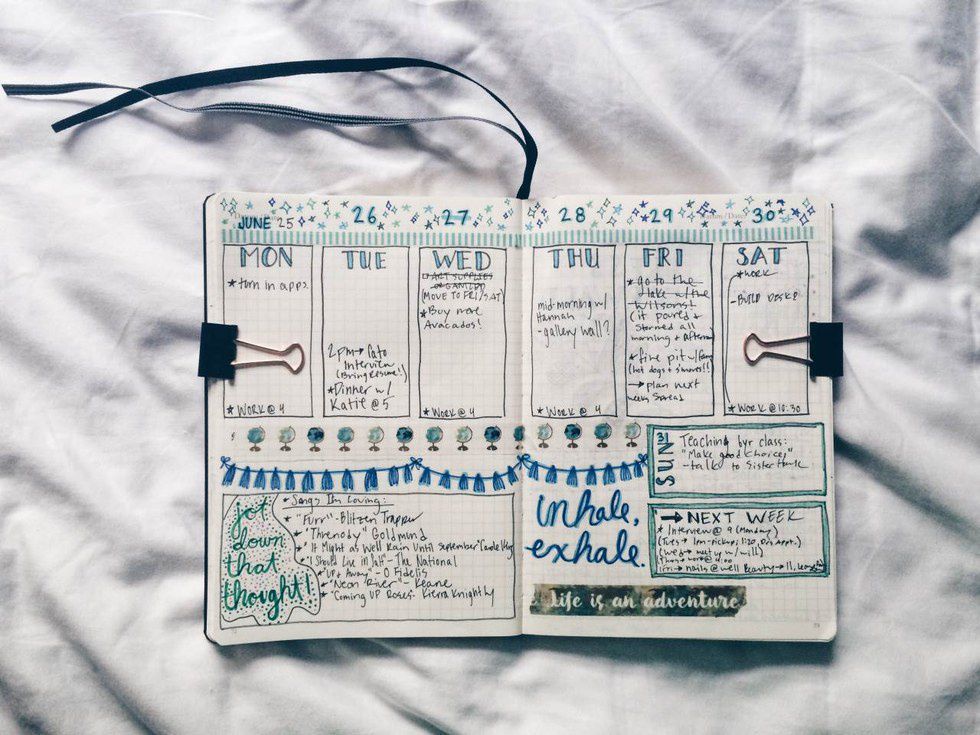 JUNE 25
26
27
28
29
30
MON
* turn in apps.
* WORK @ 4
TUE
2pm → Cato
Interview
(Bring Resume!)
* Dinner w/
Katie @ 5
WED
ACT SUPPLIES
(MOVE TO FRI/SAT)
* Buy more
Avocados!
* WORK @ 4
THU
mid-morning w/
Hannah
- gallery wall?
* WORK @ 4
FRI
* go to the
lake w/ the
Wilsons!
(it poured +
stormed all
morning + afternoon
* fire pit w/
(hot dogs + s'mores!!)
→ plan next
weeks spread
SAT
* WORK
- BUILD DESK?
* WORK @ 10:30
31
SUN
Teaching 6yr class:
"Make good choices"
- talk to Sister
jot
down
that
thought!
* Songs Im Loving:
* "Furr" - Blitzen Trapper
* "Threnody" Goldmund
* "It Might as Well Rain Until September" Carole King
* "I Should Live in Salt" - The National
* "Up + Away" - O Fidelis
* "Neon River" - Keane
* "Coming UP Roses - Kierra Knightly
inhale,
exhale.
→ NEXT WEEK
* Interview @ 9 (Monday)
(Tues → 1m-pickup; 1:20, Drs Appt.)
(Wed → meet up w/ will)
Thurs → work @ 4:00
Fri → nails @ well Beauty → 11,
Life is an adventure